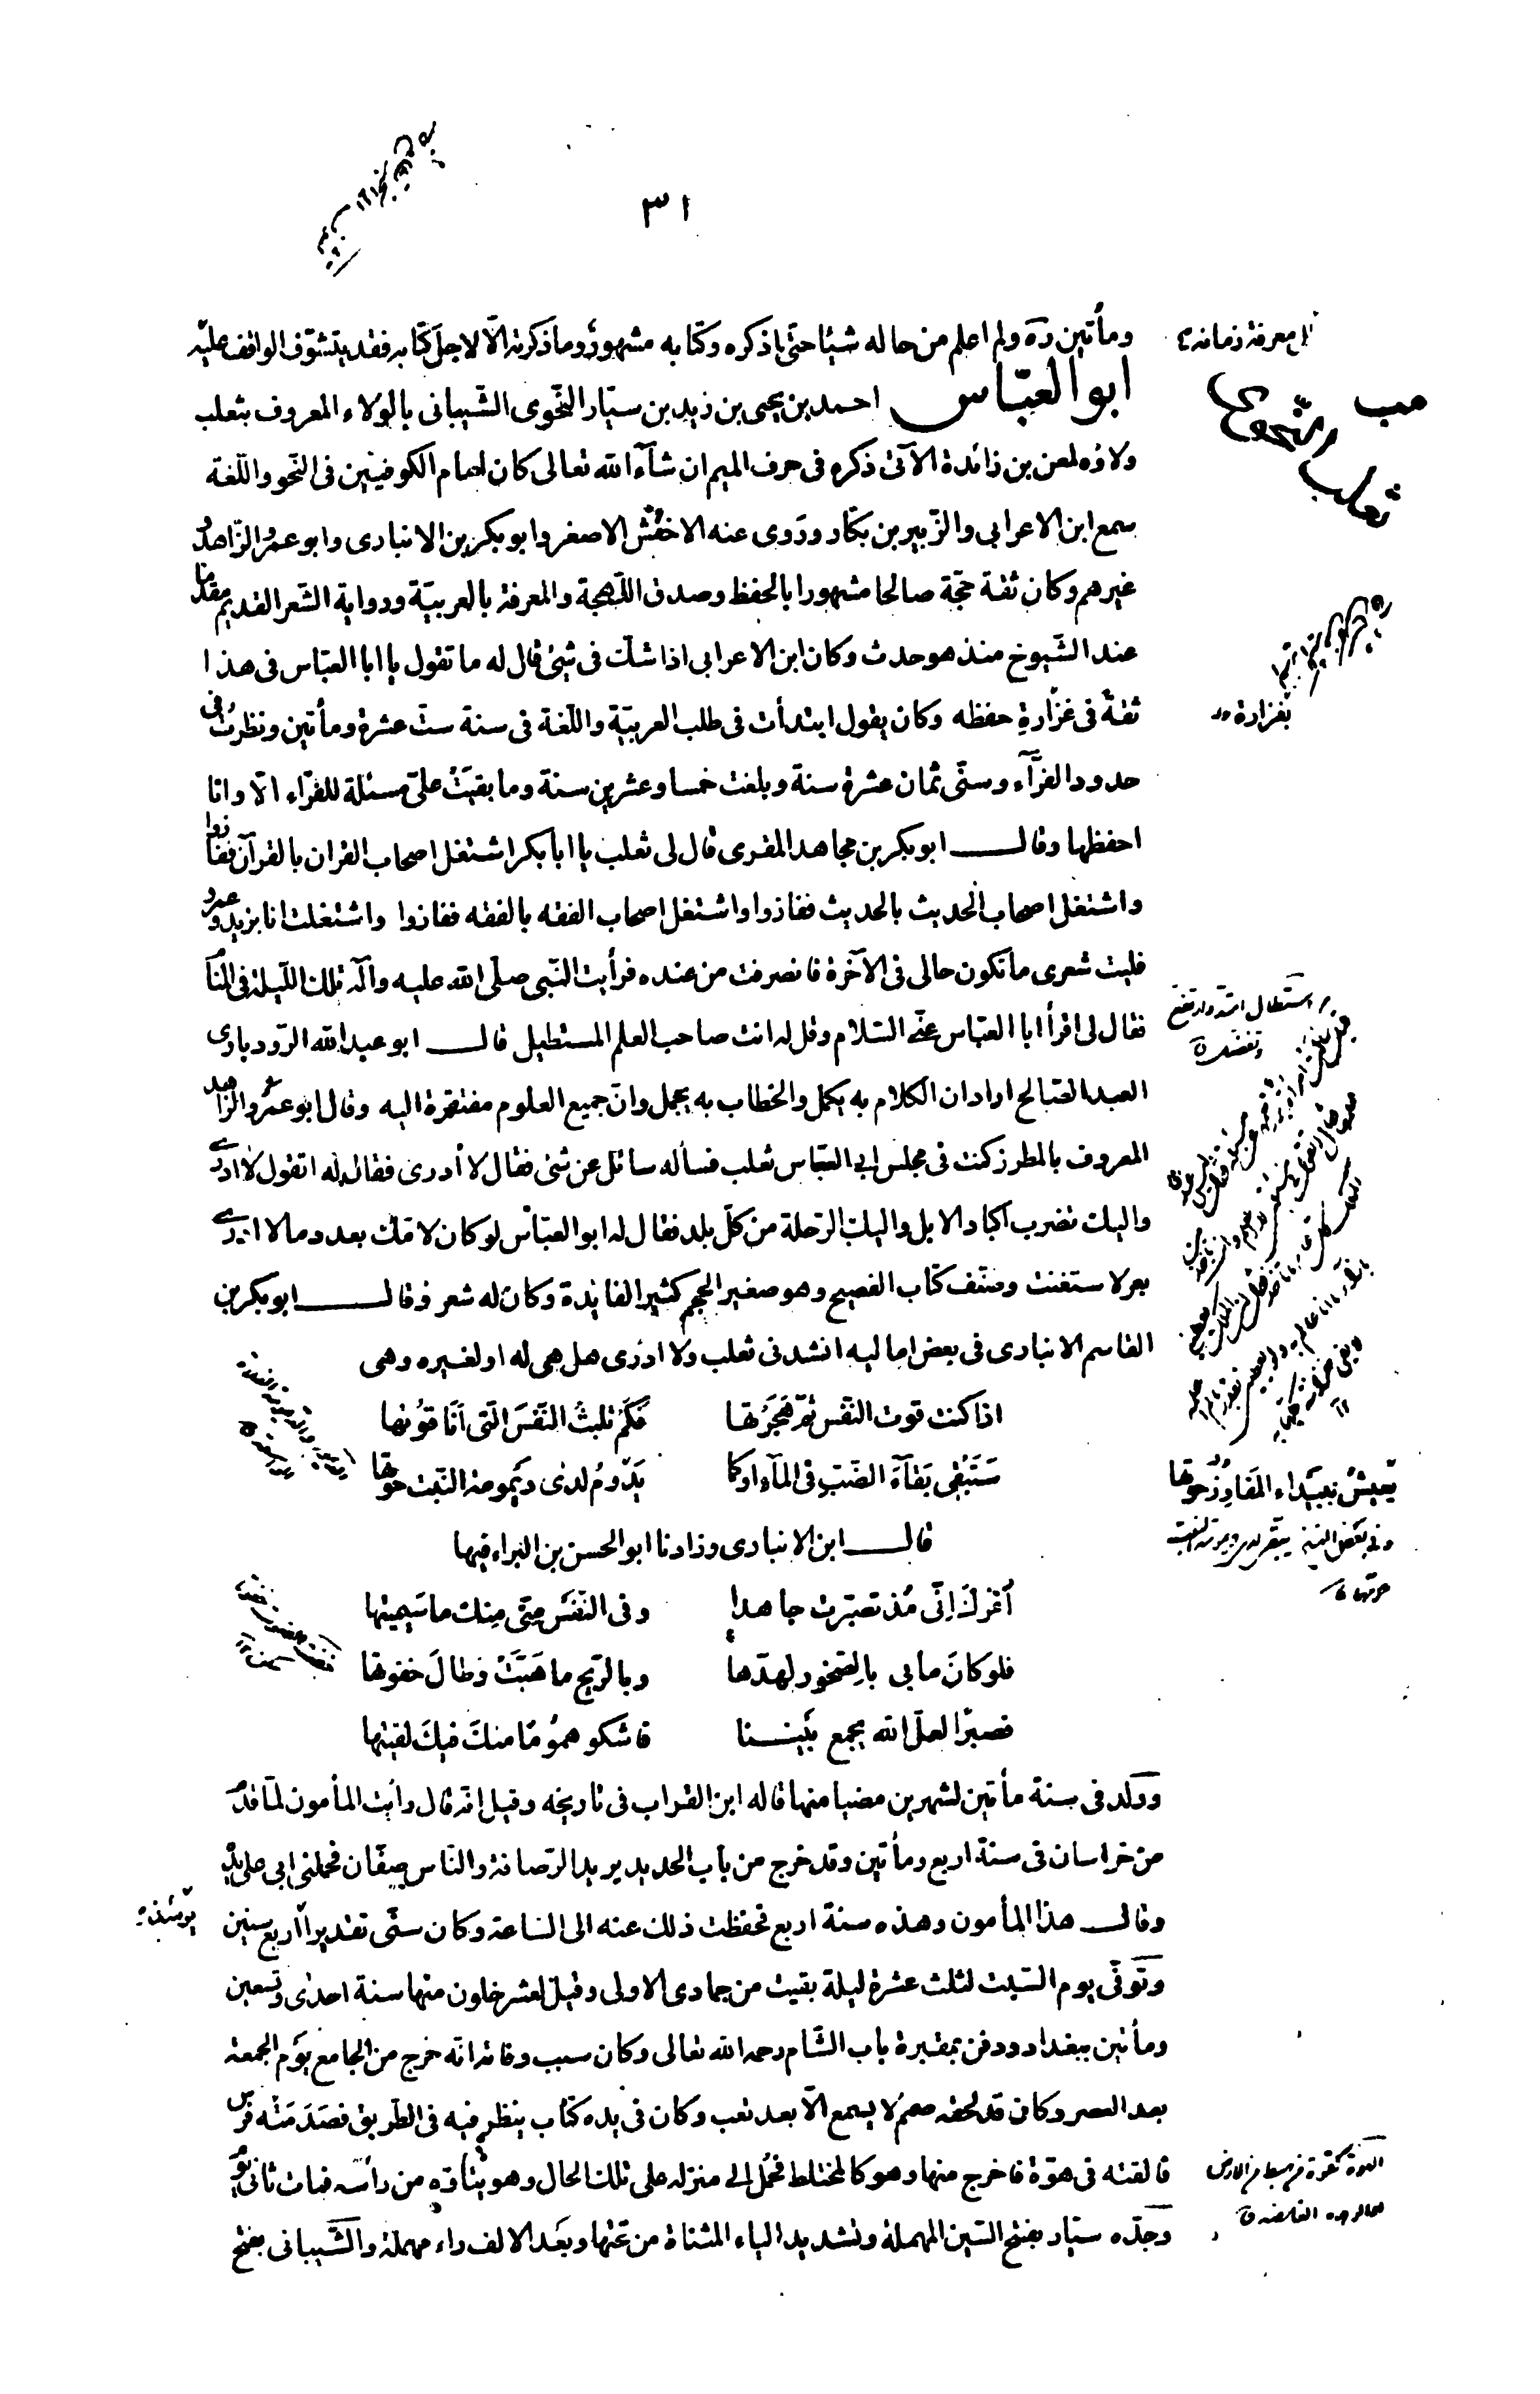 ٣١
ومأتين ره ولم اعلم من حاله شيئا حتى اذكره وكتابه مشهور وما ذكرته الا لاجل كتابه فقد يتشوف الواقف عليه
الى معرفة زمانه
ابو العباس احمد بن يحيى بن زيد بن سيار النحوى الشيبانى بالولاء المعروف بثعلب
النحوي
ثعلب
ولاؤه لمعن بن زائدة الآتى ذكره فى حرف الميم ان شاء الله تعالى كان امام الكوفيين فى النحو واللغة
سمع ابن الاعرابى والزبير بن بكار وروى عنه الاخفش الاصغر وابو بكر بن الانبارى وابو عمر الزاهد و
غيرهم وكان ثقة حجة صالحا مشهورا بالحفظ وصدق اللهجة والمعرفة بالعربية ورواية الشعر القديم مقدما
عند الشيوخ منذ هو حدث وكان ابن الاعرابى اذا شك فى شئ قال له ما تقول يا ابا العباس فى هذا
ثقة فى غزارة حفظه وكان يقول ابتدأت فى طلب العربية واللغة فى سنة ست عشرة ومأتين ونظرت فى
بغزارة
حدود الفرآء وسنى ثمان عشرة سنة وبلغت خمسا وعشرين سنة وما بقيت على مسئلة للفراء الا وانا
احفظها وقال ابو بكر بن مجاهد المقرى قال لى ثعلب يا ابا بكر اشتغل اصحاب القران بالقرآن ففازوا
واشتغل اصحاب الحديث بالحديث ففازوا واشتغل اصحاب الفقه بالفقه ففازوا واشتغلت انا بزيد وعمرو
فليت شعرى ما تكون حالى فى الآخرة فانصرفت من عنده فرأيت النبى صلى الله عليه وآله تلك الليلة فى المنا
فقال لى اقرأ ابا العباس عنى السلام وقل له انت صاحب العلم المستطيل قال ابو عبد الله الرودبارى
العبد الصالح اراد ان الكلام به يكمل والخطاب به يجمل وان جميع العلوم مفتقرة اليه وقال ابو عمرو الزاهد
المعروف بالمطرز كنت فى مجلس ابى العباس ثعلب فسأله سائل عن شئ فقال لا أدرى فقال له اتقول لا ادرى
واليك تضرب اكباد الابل واليك الرحلة من كل بلد فقال له ابو العباس لو كان لامك بعدد ما لا ادرى
بعر لاستغنت وصنف كتاب الفصيح وهو صغير الحجم كثير الفائدة وكان له شعر وقال ابو بكر بن
القاسم الانبارى فى بعض اماليه انشدنى ثعلب ولا ادرى هل هى له او لغيره وهى
اذا كنت قوت النفس ثم هجرتها فكم تلبث النفس التى انا قوتها
ستبقى بقآء الضب فى المآء او كما يدوم لدى ديمومة النبت حوتها
يعيش ببيداء المفاوز حوتها
قال ابن الانبارى وزادنا ابو الحسن بن البراء فيها
أغرك انى مذ تصبرت جاهدا وفى النفس منى منك ما سيميتها
فلو كان ما بى بالصخور لهدها وبالريح ما هبت وطال خفوتها
فصبرا لعل الله يجمع بيننا فاشكو هموما منك فيك لقيتها
وولد فى سنة مأتين لشهرين مضيا منها قاله ابن القراب فى تاريخه وقيل انه قال رأيت المأمون لما قدم
من خراسان فى سنة اربع ومأتين وقد خرج من باب الحديد يريد الرصافة والناس صفان فحملنى ابى على يده
وقال هذا المأمون وهذه سنة اربع فحفظت ذلك عنه الى الساعة وكان سنى تقديرا اربع سنين
يومئذ
وتوفى يوم السبت لثلث عشرة ليلة بقيت من جمادى الاولى وقيل لعشر خلون منها سنة احدى وتسعين
ومأتين ببغداد ودفن بمقبرة باب الشام رحمه الله تعالى وكان سبب وفاته انه خرج من الجامع يوم الجمعة
بعد العصر وكان قد لحقه صمم لا يسمع الا بعد تعب وكان فى يده كتاب ينظر فيه فى الطريق فصدمته فرس
فالقته فى هوة فاخرج منها وهو كالمختلط فحمل الى منزله على تلك الحال وهو يتأوه من رأسه فمات ثانى يوم
وجده سيار بفتح السين المهملة وتشديد الياء المثناة من تحتها وبعد الالف راء مهملة والشيبانى بفتح